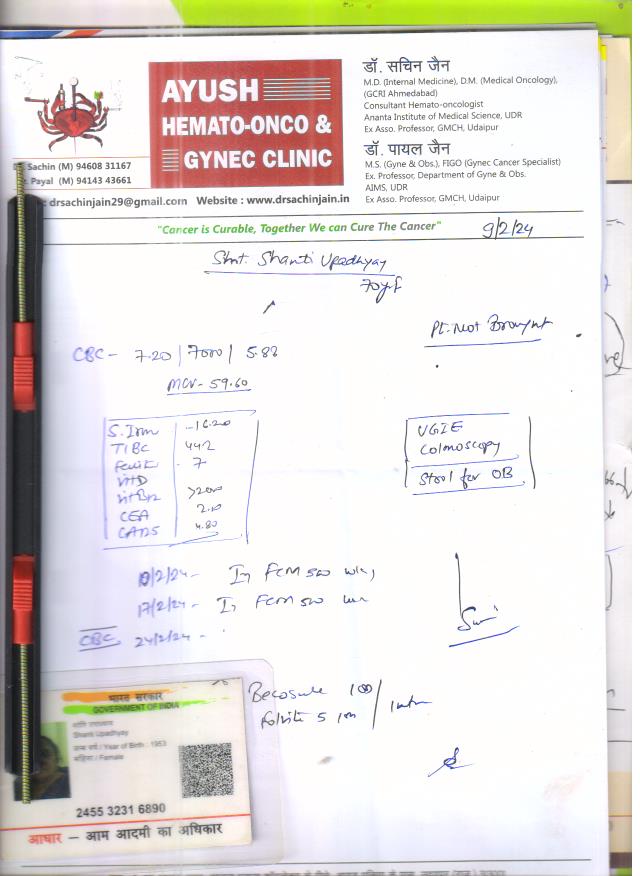 AYUSH
HEMATO-ONCO &
GYNEC CLINIC
डॉ. सचिन जैन
M.D. (Internal Medicine), D.M. (Medical Oncology),
(GCRI Ahmedabad)
Consultant Hemato-oncologist
Ananta Institute of Medical Science, UDR
Ex Asso. Professor, GMCH, Udaipur
डॉ. पायल जैन
M.S. (Gyne & Obs.), FIGO (Gynec Cancer Specialist)
Ex. Professor, Department of Gyne & Obs.
AIMS, UDR
Ex Asso. Professor, GMCH, Udaipur
Sachin (M) 94608 31167
Payal (M) 94143 43661
: drsachinjain29@gmail.com Website : www.drsachinjain.in
"Cancer is Curable, Together We can Cure The Cancer"
9/2/24
Smt. Shanti Upadhyay
70yr/f
Pt. Not
CBC - 7.20 / 7000 / 5.88
MCV - 59.60
S. Iron - 16.20
TIBC 442
7
Vit D
Vit B12 >2000
CEA 2.10
CA125 4.80
UGIE
Colonoscopy
Stool for OB
10/2/24 - Inj FCM 500
17/2/24 - Inj FCM 500
CBC 24/2/24 -
Becosule
Folvite 5
भारत सरकार
GOVERNMENT OF INDIA
शांति उपाध्याय
Shanti Upadhyay
जन्म वर्ष / Year of Birth : 1953
महिला / Female
2455 3231 6890
आधार – आम आदमी का अधिकार